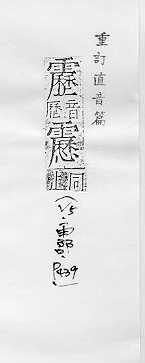 重訂直音篇
靂
音歷
同上
(1/5·雨部·P.439)